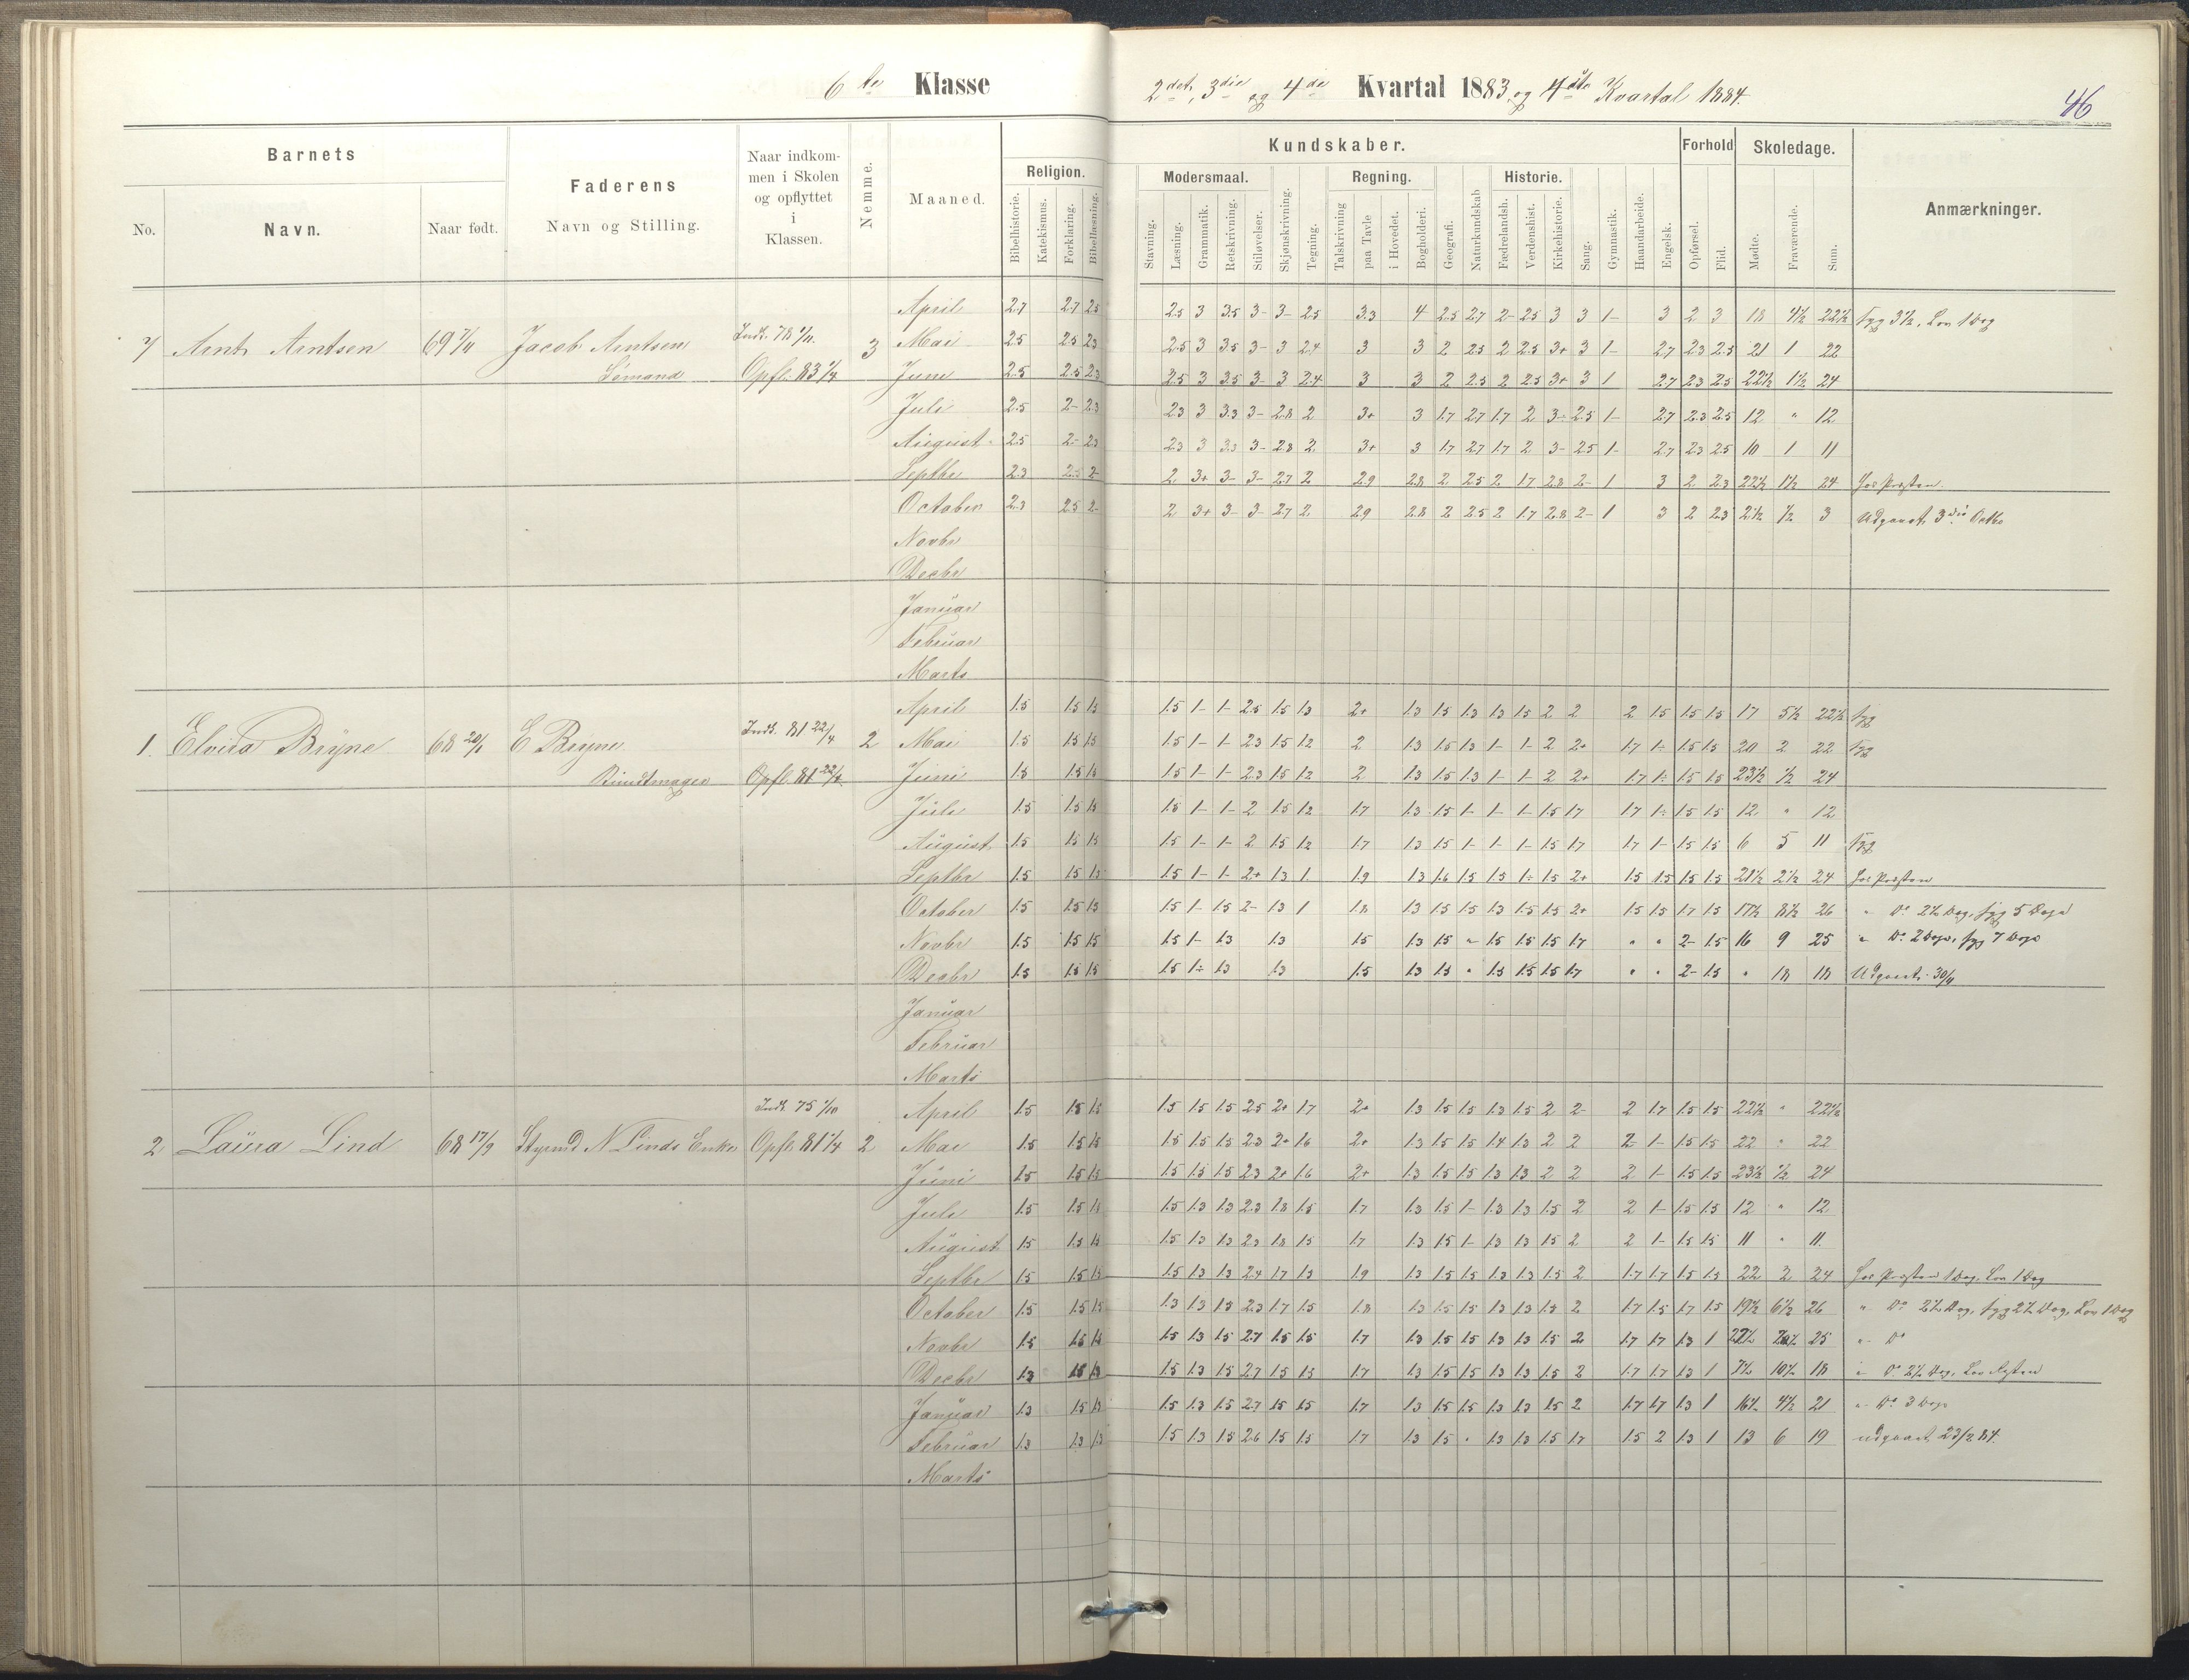 6te Klasse
2det, 3die og 4de Kvartal 1883 og 4de Kvartal 1884.
46
Barnets
Faderens
Naar indkommen i Skolen og opflyttet i Klassen.
Nemme.
Maaned.
Kundskaber.
Forhold
Skoledage.
Anmærkninger.
No.
Navn.
Naar født.
Navn og Stilling.
Religion.
Modersmaal.
Regning.
Historie.
Bibelhistorie.
Katekismus.
Forklaring.
Bibellæsning.
Stavning.
Læsning.
Grammatik.
Retskrivning.
Stiløvelser.
Skjønskrivning.
Tegning.
Talskrivning
paa Tavle
i Hovedet.
Bogholderi.
Geografi.
Naturkundskab
Fædrelandsh.
Verdenshist.
Kirkehistorie.
Sang.
Gymnastik.
Haandarbeide.
Engelsk.
Opførsel.
Flid.
Mødte.
Fraværende.
Sum.
April 2.7 2.7 2.5 2.5 3 3.5 3- 3- 2.5 3.3 4 2.5 2.7 2- 2.5 3 3 1- 3 2 3 18 4½ 22½ syg 3½, Lov 1 Dag
7 Arnt Arntsen 69 7/11 Jacob Arntsen Indk. 78 1/11 3 Mai 2.5 2.5 2.3 2.5 3 3.5 3- 3 2.4 3 3 2 2.5 2 2.5 3+ 3 1- 2.7 2.3 2.5 21 1 22
Sømand Opfl. 83 1/4 Juni 2.5 2.5 2.3 2.5 3 3.5 3- 3 2.4 3 3 2 2.5 2 2.5 3+ 3 1 2.7 2.3 2.5 22½ 1½ 24
Juli 2.5 2- 2.3 2.3 3 3.3 3- 2.8 2 3+ 3 1.7 2.7 1.7 2 3- 2.5 1- 2.7 2.3 2.5 12 " 12
August 2.5 2- 2.3 2.3 3 3.3 3- 2.8 2 3+ 3 1.7 2.7 1.7 2 3- 2.5 1- 2.7 2.3 2.5 10 1 11
Septbr 2.3 2.5 2- 2 3+ 3- 3- 2.7 2 2.9 2.8 2 2.5 2 1.7 2.8 2- 1 3 2 2.3 22½ 1½ 24 hos Præsten.
October 2.3 2.5 2- 2 3+ 3- 3- 2.7 2 2.9 2.8 2 2.5 2 1.7 2.8 2- 1 3 2 2.3 2½ ½ 3 Udgaaet 3die Octbr
Novbr
Decbr
Januar
Februar
Marts
April 1.5 1.5 1.5 1.5 1- 1- 2.5 1.5 1.3 2+ 1.3 1.5 1.3 1.3 1.5 2 2 2 1.5 1.5 1.5 17 5½ 22½ syg
1. Elvira Bryne 68 20/1 E Bryne Indk. 81 22/4 2 Mai 1.5 1.5 1.5 1.5 1- 1- 2.3 1.5 1.2 2 1.3 1.5 1.3 1- 1- 2 2+ 1.7 1- 1.5 1.5 20 2 22 syg
Bundtmager Opfl. 81 22/4 Juni 1.5 1.5 1.5 1.5 1- 1- 2.3 1.5 1.2 2 1.3 1.5 1.3 1- 1- 2 2+ 1.7 1- 1.5 1.5 23½ ½ 24
Juli 1.5 1.5 1.5 1.5 1- 1- 2 1.5 1.2 1.7 1.3 1.5 1- 1- 1- 1.5 1.7 1.7 1- 1.5 1.5 12 " 12
August 1.5 1.5 1.5 1.5 1- 1- 2 1.5 1.2 1.7 1.3 1.5 1- 1- 1- 1.5 1.7 1.7 1- 1.5 1.5 6 5 11 syg
Septbr 1.5 1.5 1.5 1.5 1- 1- 2+ 1.3 1 1.9 1.3 1.6 1.5 1.5 1- 1.5 2+ 1.5 1.5 1.5 1.5 21½ 2½ 24 hos Præsten
October 1.5 1.5 1.5 1.5 1- 1.5 2- 1.3 1 1.8 1.3 1.5 1.5 1.3 1.5 1.5 2+ 1.5 1.5 1.7 1.5 17½ 8½ 26 " Do 2½ Dag, syg 5 Dage
Novbr 1.5 1.5 1.5 1.5 1- 1.3 1.3 1.5 1.3 1.5 " 1.5 1.5 1.5 1.7 " " 2- 1.5 16 9 25 " Do 2 Dage, syg 7 Dage
Decbr 1.5 1.5 1.5 1.5 1- 1.3 1.3 1.5 1.3 1.5 " 1.5 1.5 1.5 1.7 " " 2- 1.5 " 18 18 Udgaaet 30/11
Januar
Februar
Marts
Indk. 75 1/10 April 1.5 1.5 1.5 1.5 1.5 1.5 2.5 2+ 1.7 2+ 1.3 1.5 1.5 1.3 1.5 2 2- 2 1.7 1.5 1.5 22½ " 22½
2 Laura Lind 68 17/9 Styrmd N Linds Enke Opfl. 81 1/4 2 Mai 1.5 1.5 1.5 1.5 1.5 1.5 2.3 2+ 1.6 2+ 1.3 1.5 1.5 1.4 1.3 2 2 2- 1- 1.5 1.5 22 " 22
Juni 1.5 1.5 1.5 1.5 1.5 1.5 2.3 2+ 1.6 2+ 1.3 1.5 1.5 1.3 1.3 2 2 2 1- 1.5 1.5 23½ ½ 24
Juli 1.5 1.5 1.5 1.5 1.3 1.3 2.3 1.8 1.5 1.7 1.3 1.5 1- 1.3 1.3 1.5 2 2 1- 1.5 1.5 12 " 12
August 1.5 1.5 1.5 1.5 1.3 1.3 2.3 1.8 1.5 1.7 1.3 1.5 1- 1.3 1.3 1.5 2 2 1- 1.5 1.5 11 " 11
Septbr 1.5 1.5 1.5 1.5 1.3 1.3 2.4 1.7 1.3 1.9 1.3 1.5 1.5 1.3 1.3 1.5 2 1.7 1.7 1.5 1.5 22 2 24 hos Præsten 1 Dag, Lov 1 Dag
October 1.5 1.5 1.5 1.3 1.3 1.5 2.3 1.7 1.5 1.8 1.3 1.5 1.5 1.3 1.3 1.5 2 1.7 1.5 1.7 1.5 19½ 6½ 26 " Do 2½ Dag, syg 2½ Dag, Lov 1 Dag
Novbr 1.5 1.5 1.5 1.5 1.3 1.5 2.7 1.5 1.5 1.7 1.3 1.5 1.5 1.3 1.3 1.5 2 1.7 1.7 1.3 1 25 " Do
Decbr 1.3 1.5 1.3 1.5 1.3 1.5 2.7 1.5 1.5 1.7 1.3 1.5 1.5 1.3 1.3 1.5 2 1.7 1.7 1.3 1 7½ 10½ 18 " Do 2½ Dag, Lov
Januar 1.3 1.5 1.3 1.5 1.3 1.5 2.7 1.5 1.5 1.7 1.3 1.5 1.5 1.3 1.3 1.5 2 1.7 1.7 1.3 1 16½ 4½ 21 " Do 3 Dage
Februar 1.3 1.3 1.3 1.5 1.3 1.5 2.6 1.5 1.5 1.7 1.3 1.5 " 1.3 1.3 1.5 1.7 1.5 2 1.3 1 13 6 19 udgaaet 23/2 84.
Marts